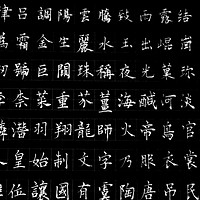 律呂調陽雲騰致雨露結
為霜金生麗水玉出崐崗
劍號巨闕珠稱夜光菓珍
李柰菜重芥薑海鹹河淡
鱗潛羽翔龍師火帝鳥官
人皇始制文字乃服衣裳
推位讓國有虞陶唐弔民